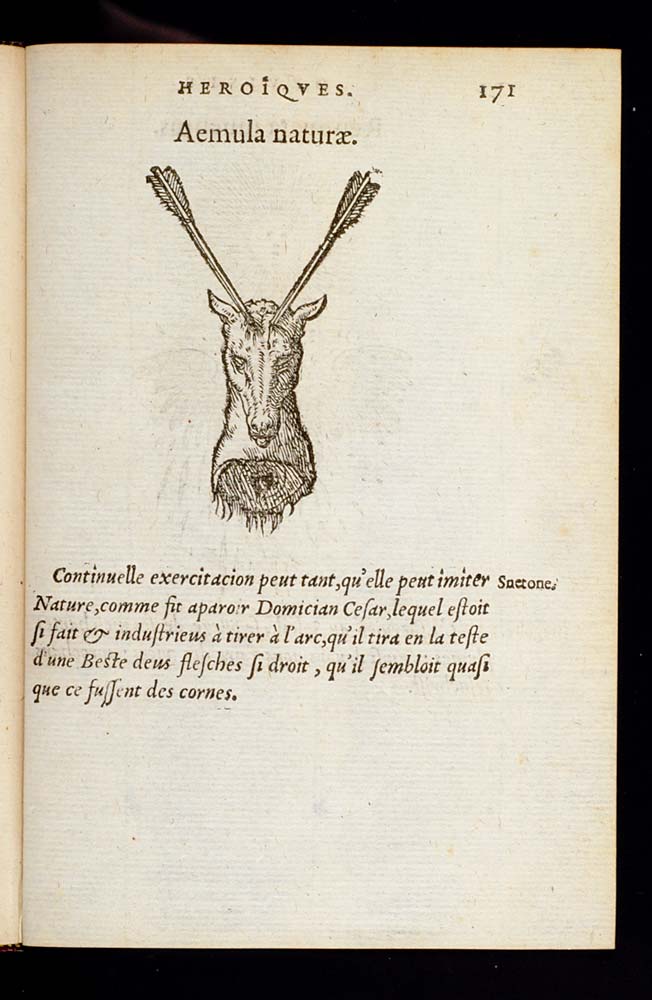 HEROÎQVES. 171
Aemula naturæ.
Continuelle exercitacion peut tant, qu'elle peut imiter Suetone.
Nature, comme fit aparoir Domician Cesar, lequel estoit
si fait & industrieus à tirer à l'arc, qu'il tira en la teste
d'une Beste deus flesches si droit, qu'il sembloit quasi
que ce fussent des cornes.